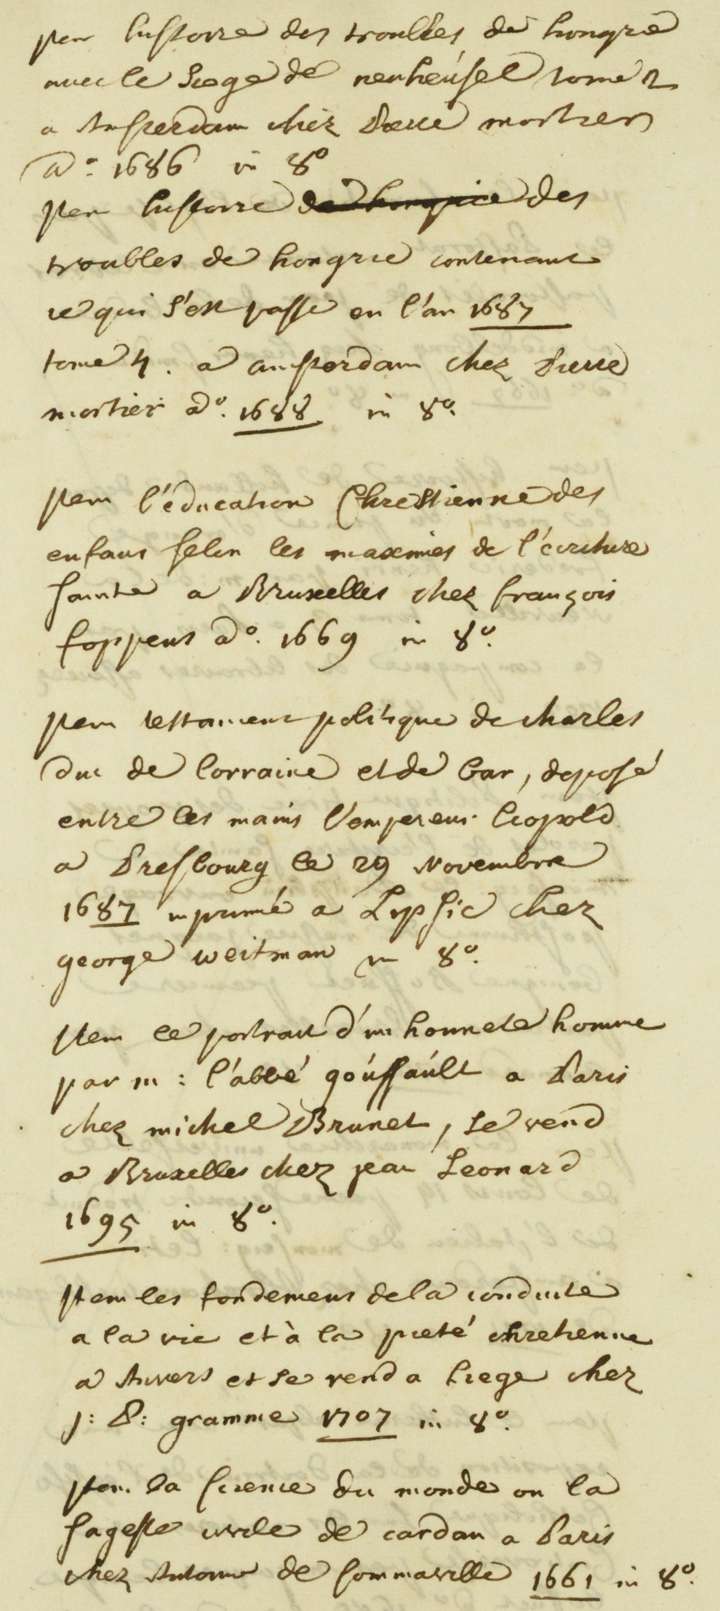 item l'histoire des troubles de hongrie
avec le siege de neuheúsel tome 2
a Amsterdam chez Pierre mortier
aº. 1686 in 8º
item l'histoire de hongrie des
troubles de hongrie contenant
ce qui s'est passe en l'an 1687
tome 4. a amsterdam chez Pierre
mortier aº. 1688 in 8º.
item l'éducation Chrestienne des
enfans selon les maximes de l'écriture
sainte a Bruxelles chez françois
foppens aº. 1669 in 8º.
item testament politique de charles
duc de lorraine et de bar, deposé
entre les mains l'empereur leopold
a Presbourg le 29 Novembre
1687 imprimé a Lipsic chez
george weitman in 8º.
item le portrait d'un honnete homme
par m: l'abbé goússaúlt a Paris
chez michel Brunet, se vend
a Bruxelles chez jean Leonard
1695 in 8º.
item les fondemens de la conduite
a la vie et à la pieté chretienne
a Anvers et se vend a liege chez
j: P: gramme 1707 in 8º.
item la science du monde ou la
sagesse civile de cardan a Paris
chez Antoine de sommaville 1661 in 8º.